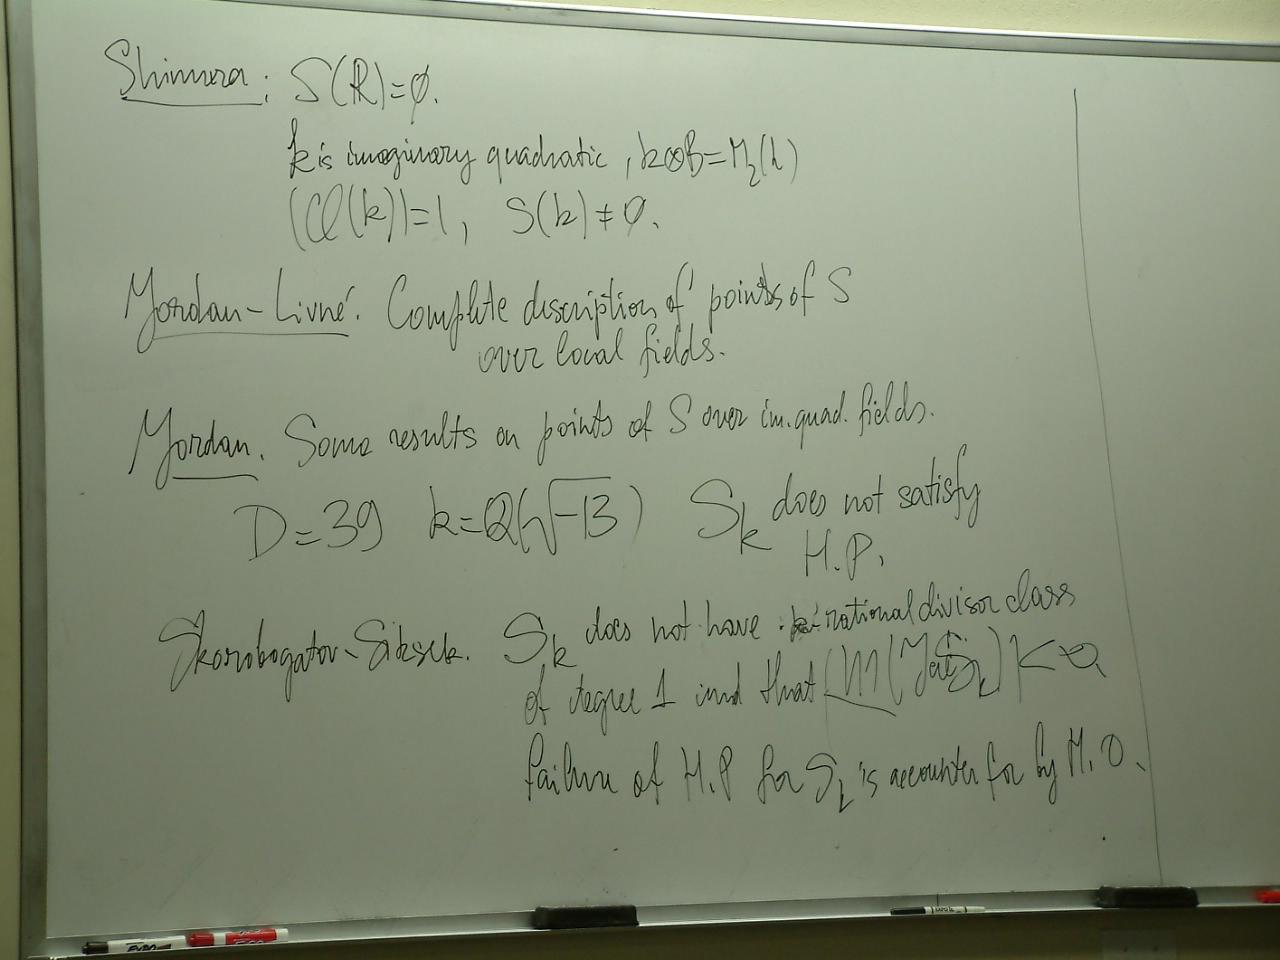 Shimura: S(ℝ)=∅.
k is imaginary quadratic, k⊗B=M₂(k)
|Cl(k)|=1, S(k)≠∅.
Jordan-Livné. Complete description of points of S
over local fields.
Jordan. Some results on points of S over im. quad. fields.
D=39 k=Q(√-13) S_k does not satisfy
H.P.
Skorobogatov-Siksek. S_k does not have rational divisor class
of degree 1 and that |Ш(Jac S_k)|<∞
failure of H.P for S_k is accounter for by M.O.